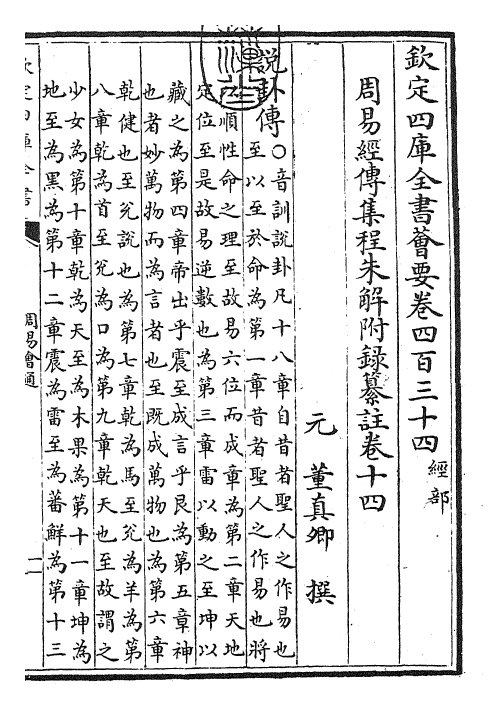 欽定四庫全書薈要卷四百三十四 經部
周易經傳集程朱解附錄纂註卷十四
元 董真卿 撰
説卦傳○音訓説卦凡十八章自昔者聖人之作易也
至以至於命為第一章昔者聖人之作易也將
以順性命之理至故易六位而成章為第二章天地
定位至是故易逆數也為第三章雷以動之至坤以
藏之為第四章帝出乎震至成言乎艮為第五章神
也者妙萬物而為言者也至既成萬物也為第六章
乾健也至兊說也為第七章乾為馬至兊為羊為第
八章乾為首至兊為口為第九章乾天也至故謂之
少女為第十章乾為天至為木果為第十一章坤為
地至為黑為第十二章震為雷至為蕃鮮為第十三
欽定四庫全書
周易會通
一